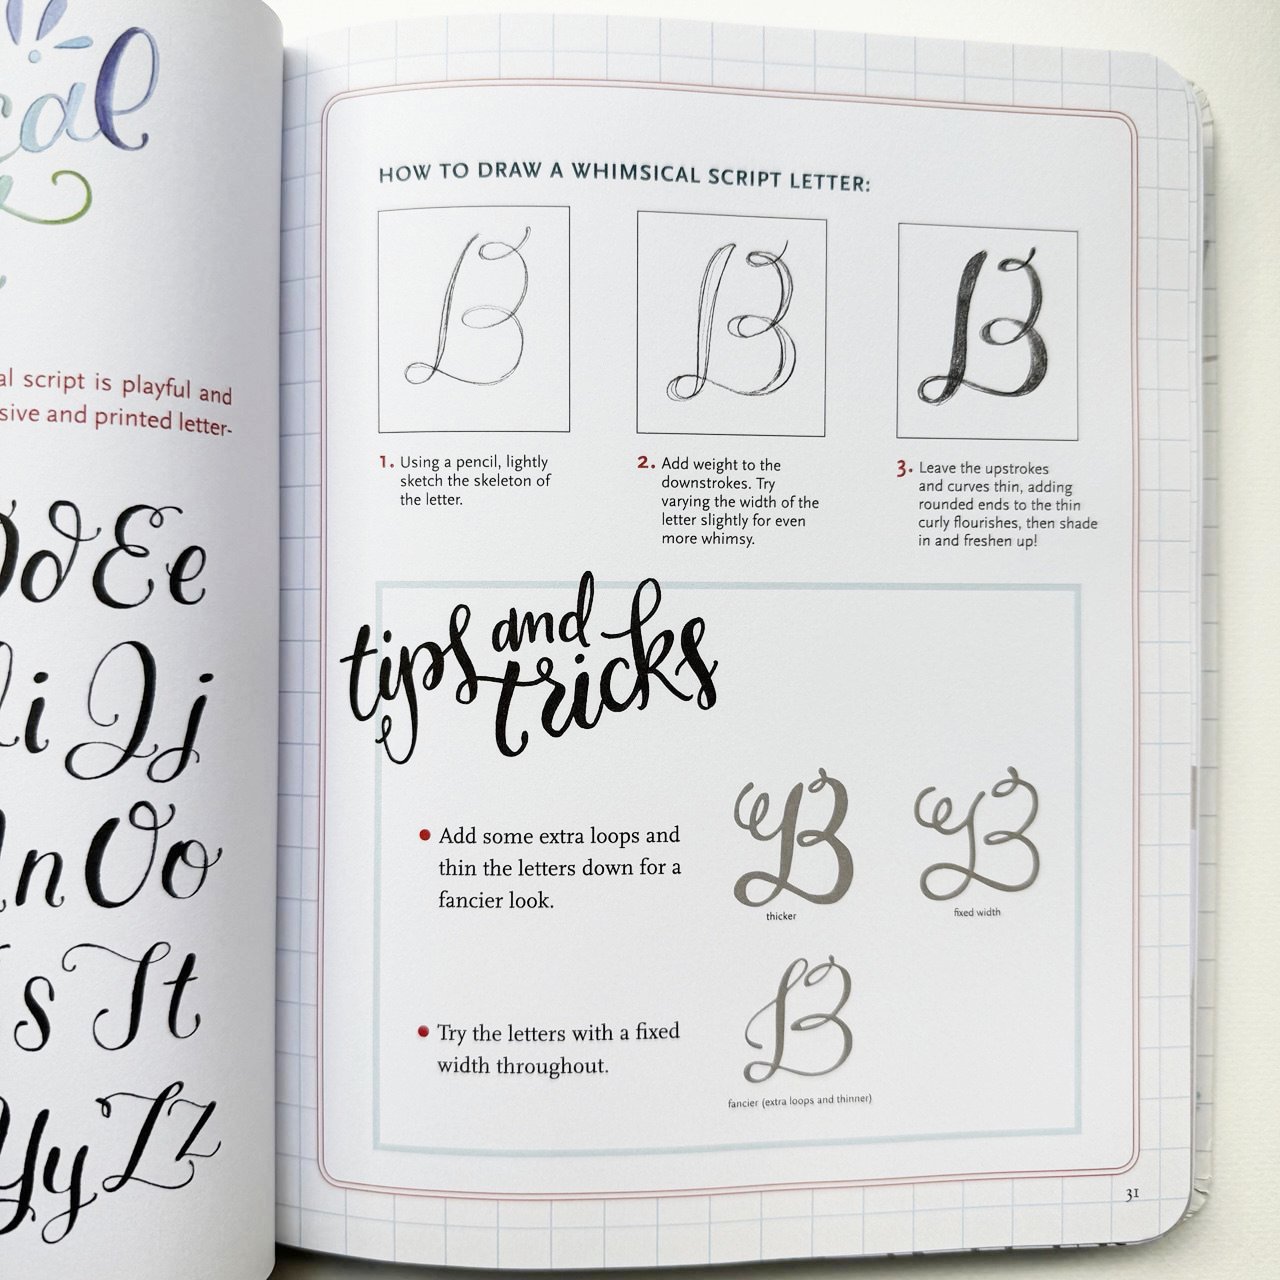 cal
al script is playful and
sive and printed letter-
d Ee
i Jj
n Oo
s Tt
Yy Zz
HOW TO DRAW A WHIMSICAL SCRIPT LETTER:
B B B
1. Using a pencil, lightly
sketch the skeleton of
the letter.
2. Add weight to the
downstrokes. Try
varying the width of the
letter slightly for even
more whimsy.
3. Leave the upstrokes
and curves thin, adding
rounded ends to the thin
curly flourishes, then shade
in and freshen up!
tips and
tricks
• Add some extra loops and
thin the letters down for a
fancier look.
B B
thicker
fixed width
• Try the letters with a fixed
width throughout.
B
fancier (extra loops and thinner)
31